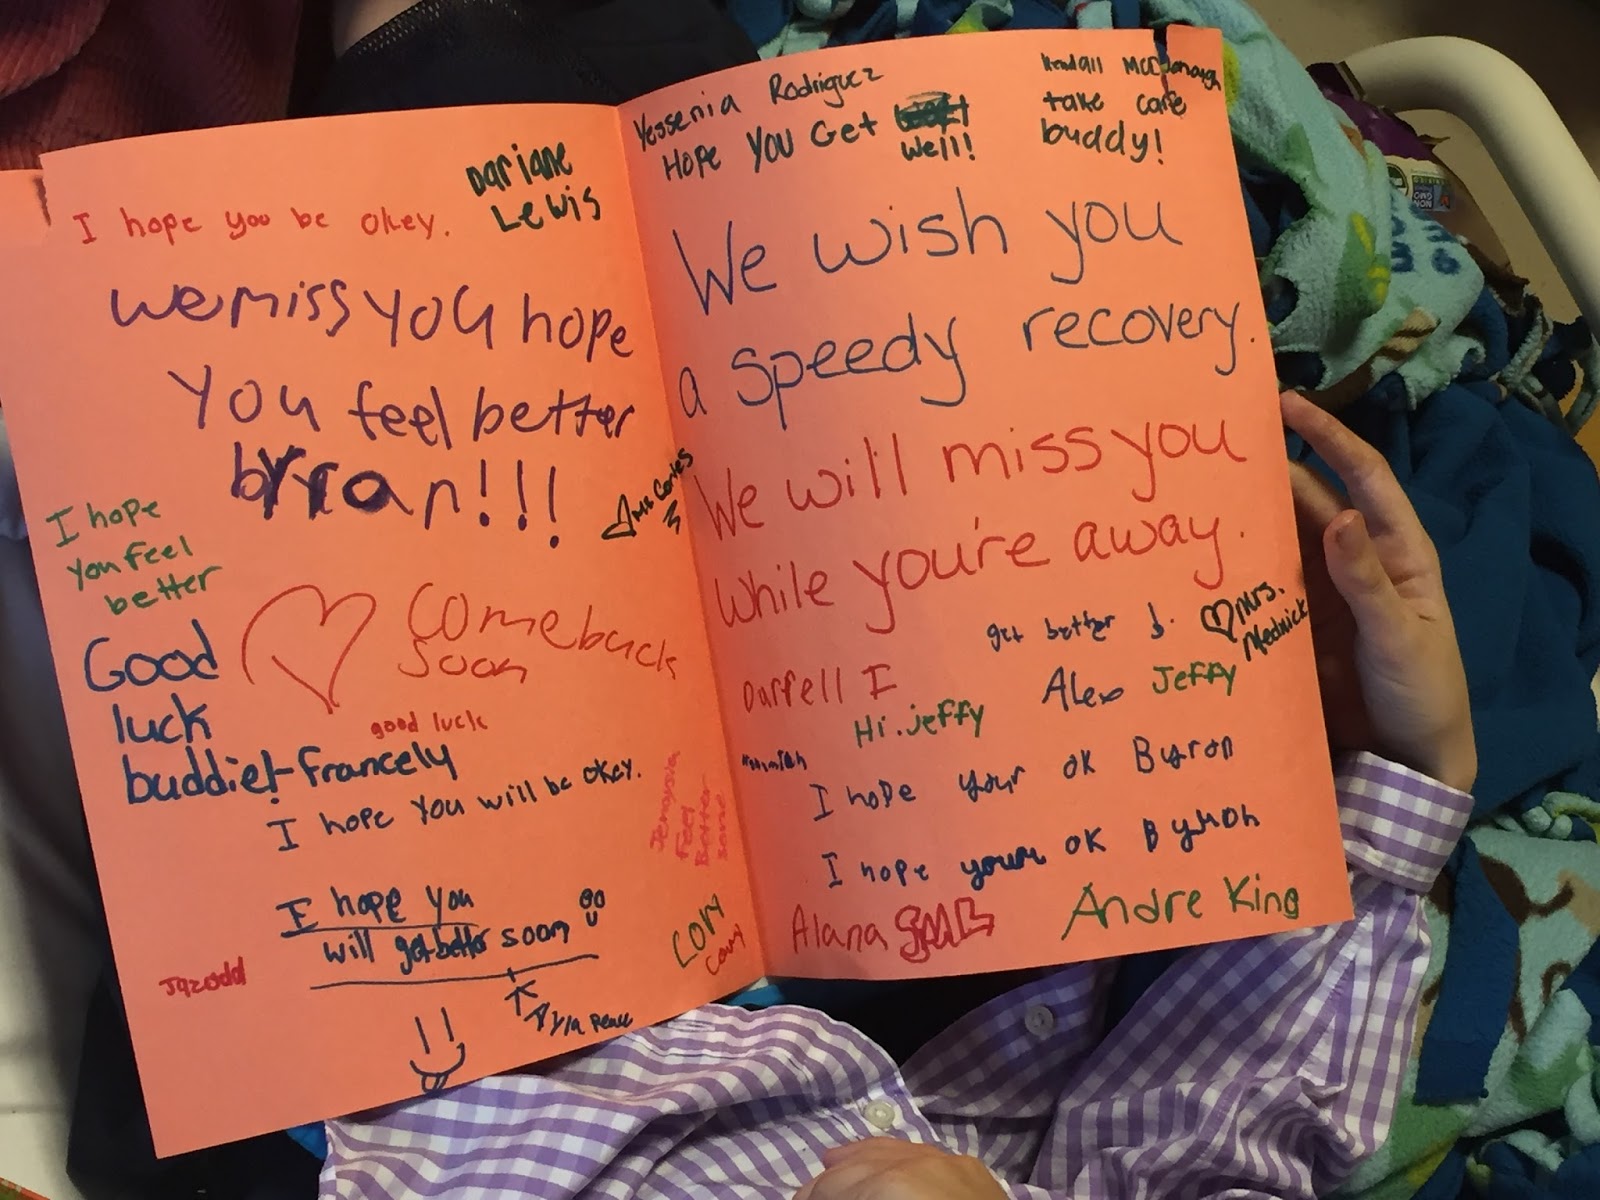 Dariane
Lewis
I hope you be okey.
we miss you hope
you feel better
byran!!!
Ms Cortes
I hope
you feel
better
Good
luck
buddie!-francely
Come back
soon
good luck
I hope you will be okey.
I hope you
will get better soon
Jemoyia
Feel
Better
Cory
Peace
Yessenia Rodriguez
Hope you Get
well!
Kendall McDonaugh
take care
buddy!
We wish you
a speedy recovery.
We will miss you
while you're away.
Mrs.
Mednick
get better
Darrell I
Hi. jeffy
Alex
Jeffy
I hope your ok Byron
I hope your ok Byron
Alana
Andre King
NON
GMO